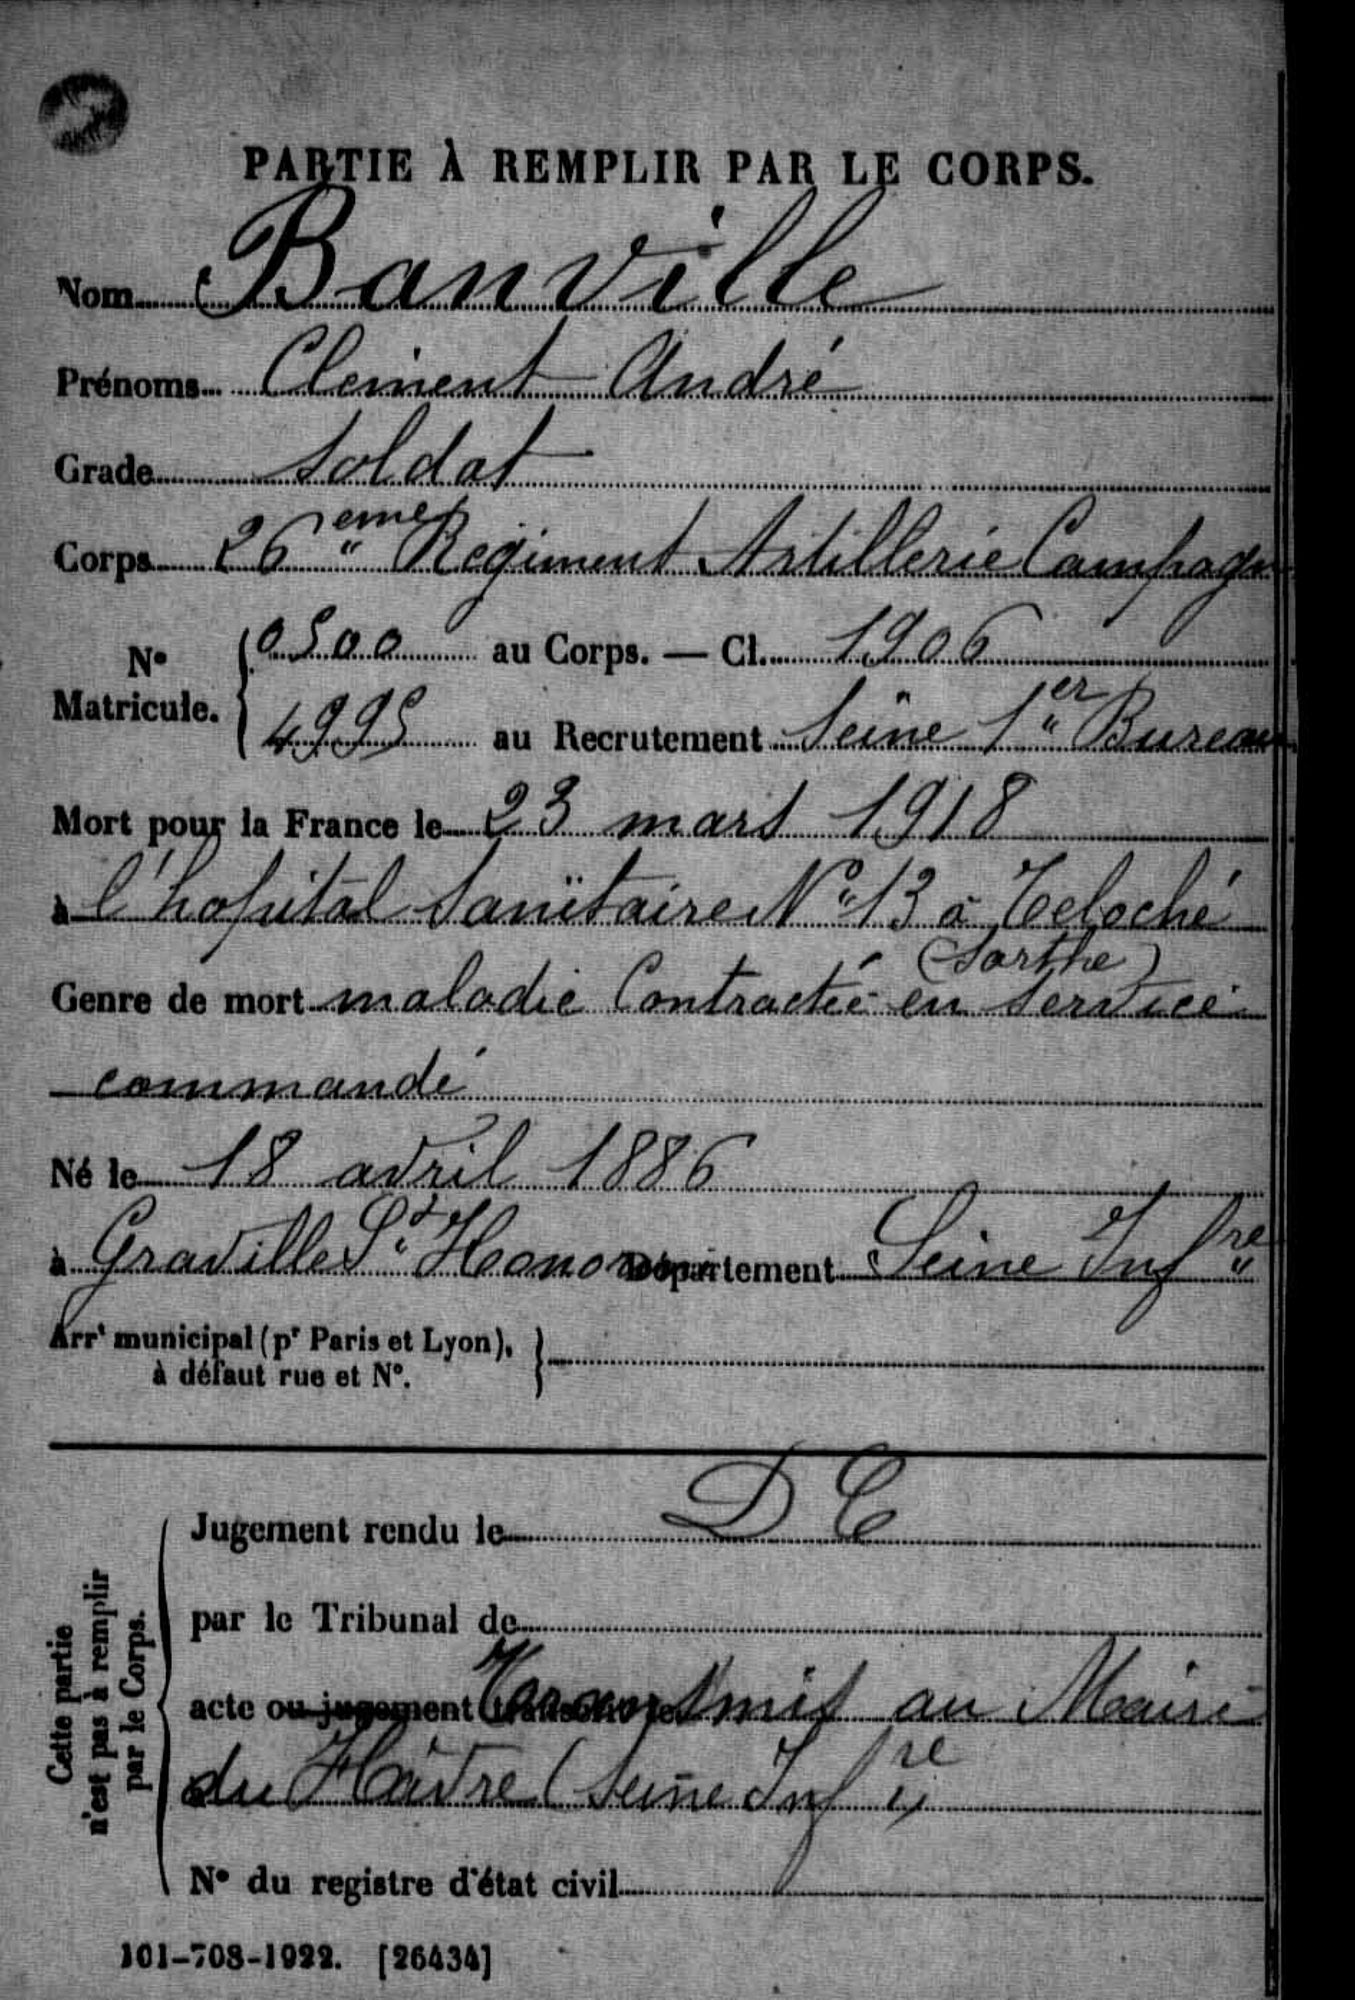 PARTIE À REMPLIR PAR LE CORPS.
Nom Banville
Prénoms Clement André
Grade soldat
Corps 26ème Régiment Artillerie Campagn
No Matricule. 0500 au Corps. — Cl. 1906
4995 au Recrutement Seine 1er Bureau
Mort pour la France le 23 mars 1918
à l'hopital Sanitaire No 13 à Teloché
(Sarthe)
Genre de mort maladie Contractée en service
commandé
Né le 18 avril 1886
à Graville St Honorine Département Seine Infre
Arrt municipal (pr Paris et Lyon),
à défaut rue et No.
Cette partie
n'est pas à remplir
par le Corps.
Jugement rendu le D C
par le Tribunal de
acte ou jugement Transmis au Maire
du Hâvre (Seine Infre
No du registre d'état civil
101-708-1922. [26434]